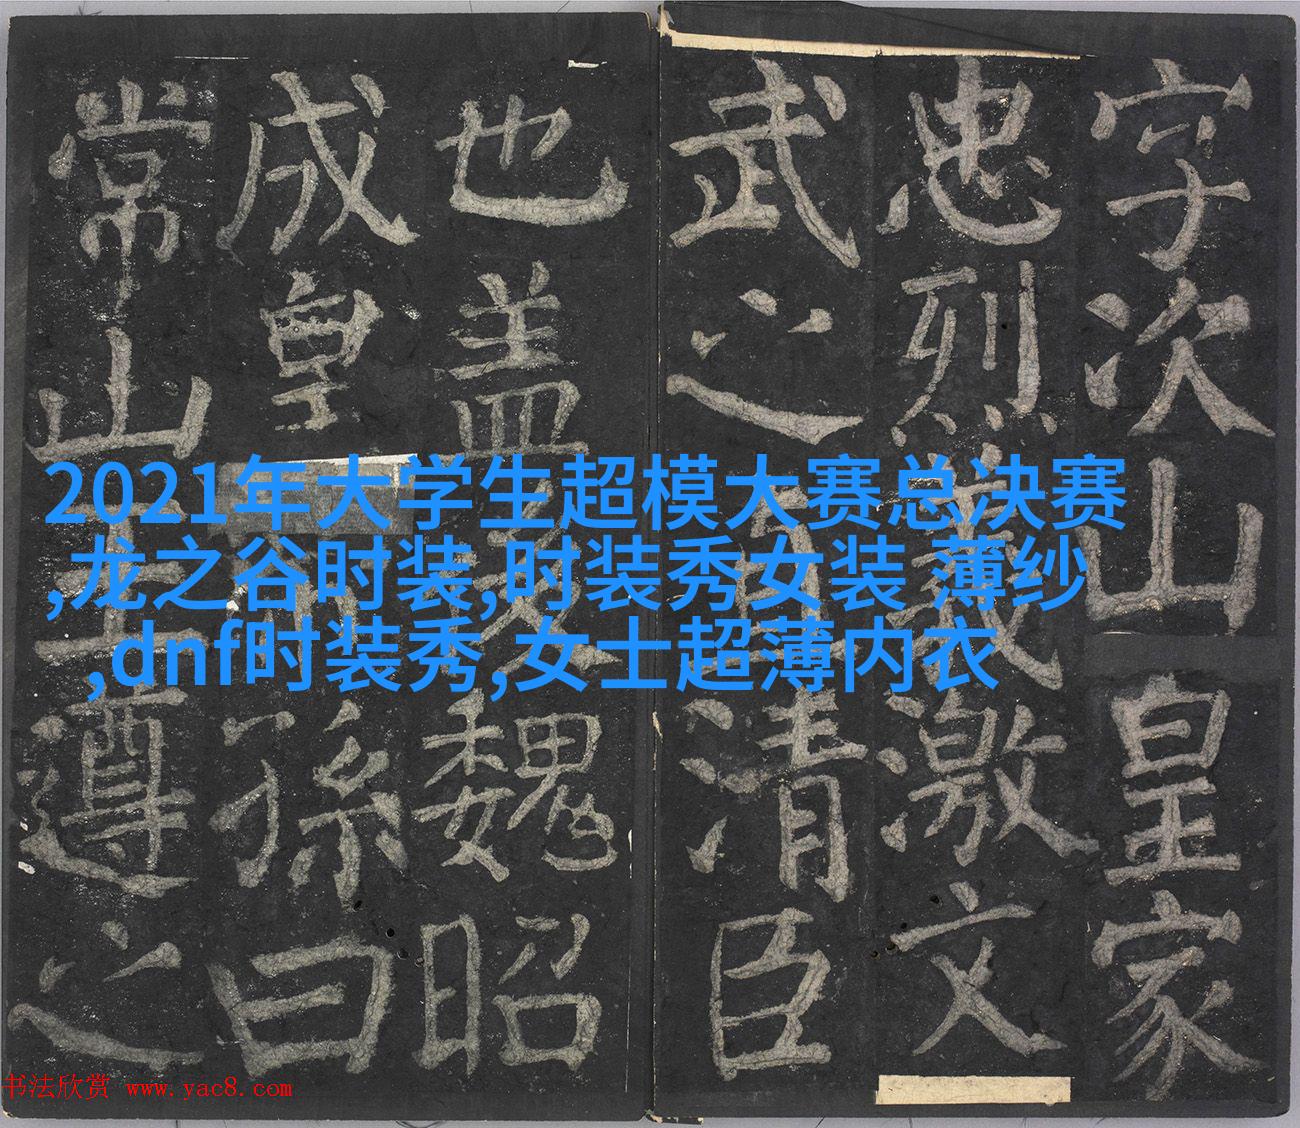 字次山皇家
忠烈義激文
武之清臣
也盖魏昭
成皇孫曰
常山王遵之
2021年大学生超模大赛总决赛
,龙之谷时装,时装秀女装 薄纱
,dnf时装秀,女士超薄内衣
书法欣赏 www.yac8.com